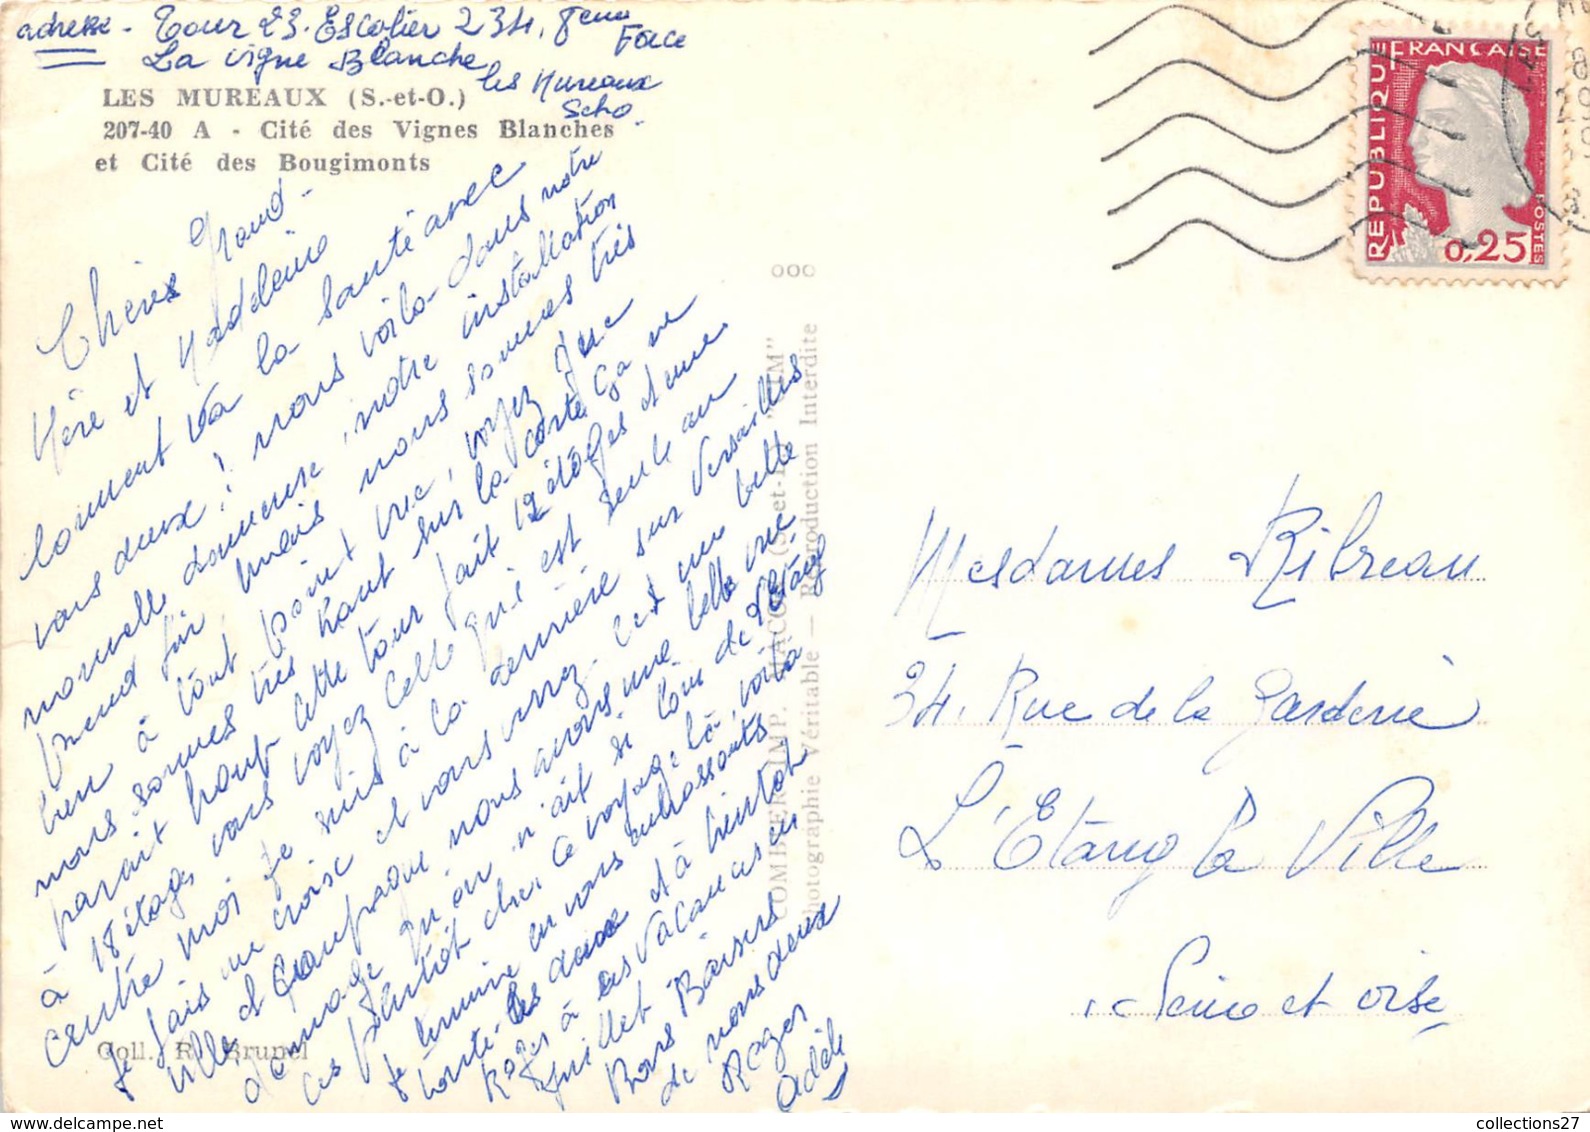 adresse - Tour 23. Escalier 234, 8eme
Face
La Vigne Blanche
les Mureaux
S et O.
LES MUREAUX (S.-et-O.)
207-40 A - Cité des Vignes Blanches
et Cité des Bougimonts
Chères Grand-
Mère et Madeleine
Comment va la santé avec
vous deux? nous voila dans notre
nouvelle demeure, notre installation
prend fin mais nous sommes très
bien à tout point vue, voyez que
nous sommes très haut sur la carte ça ne
parait haut cette tour fait 12 étages et une
à 18 étages, vous voyez celle qui est seule au
centre moi je suis à la dernière sur Versailles
je fais une croix et vous verrez. C'est une belle
ville et Campagne nous avons une belle vue
dommage qu'on n'ait si loin de l'étang
ce voyage là, voila
je termine en vous embrassants
toutes les deux et à bientot
Roger à ses vacances en
Juillet
Bons Baisers
de nous deux
Roger
Adèle
Coll. R. Brunel
COMBIER IMP. MACON (S.-et-L.) "CIM"
Photographie Véritable — Reproduction Interdite
REPUBLIQUE FRANÇAISE
POSTES
0,25
Mesdames Ribreau
34. Rue de la Garderie
L'Etang la Ville
Seine et Oise
collections27